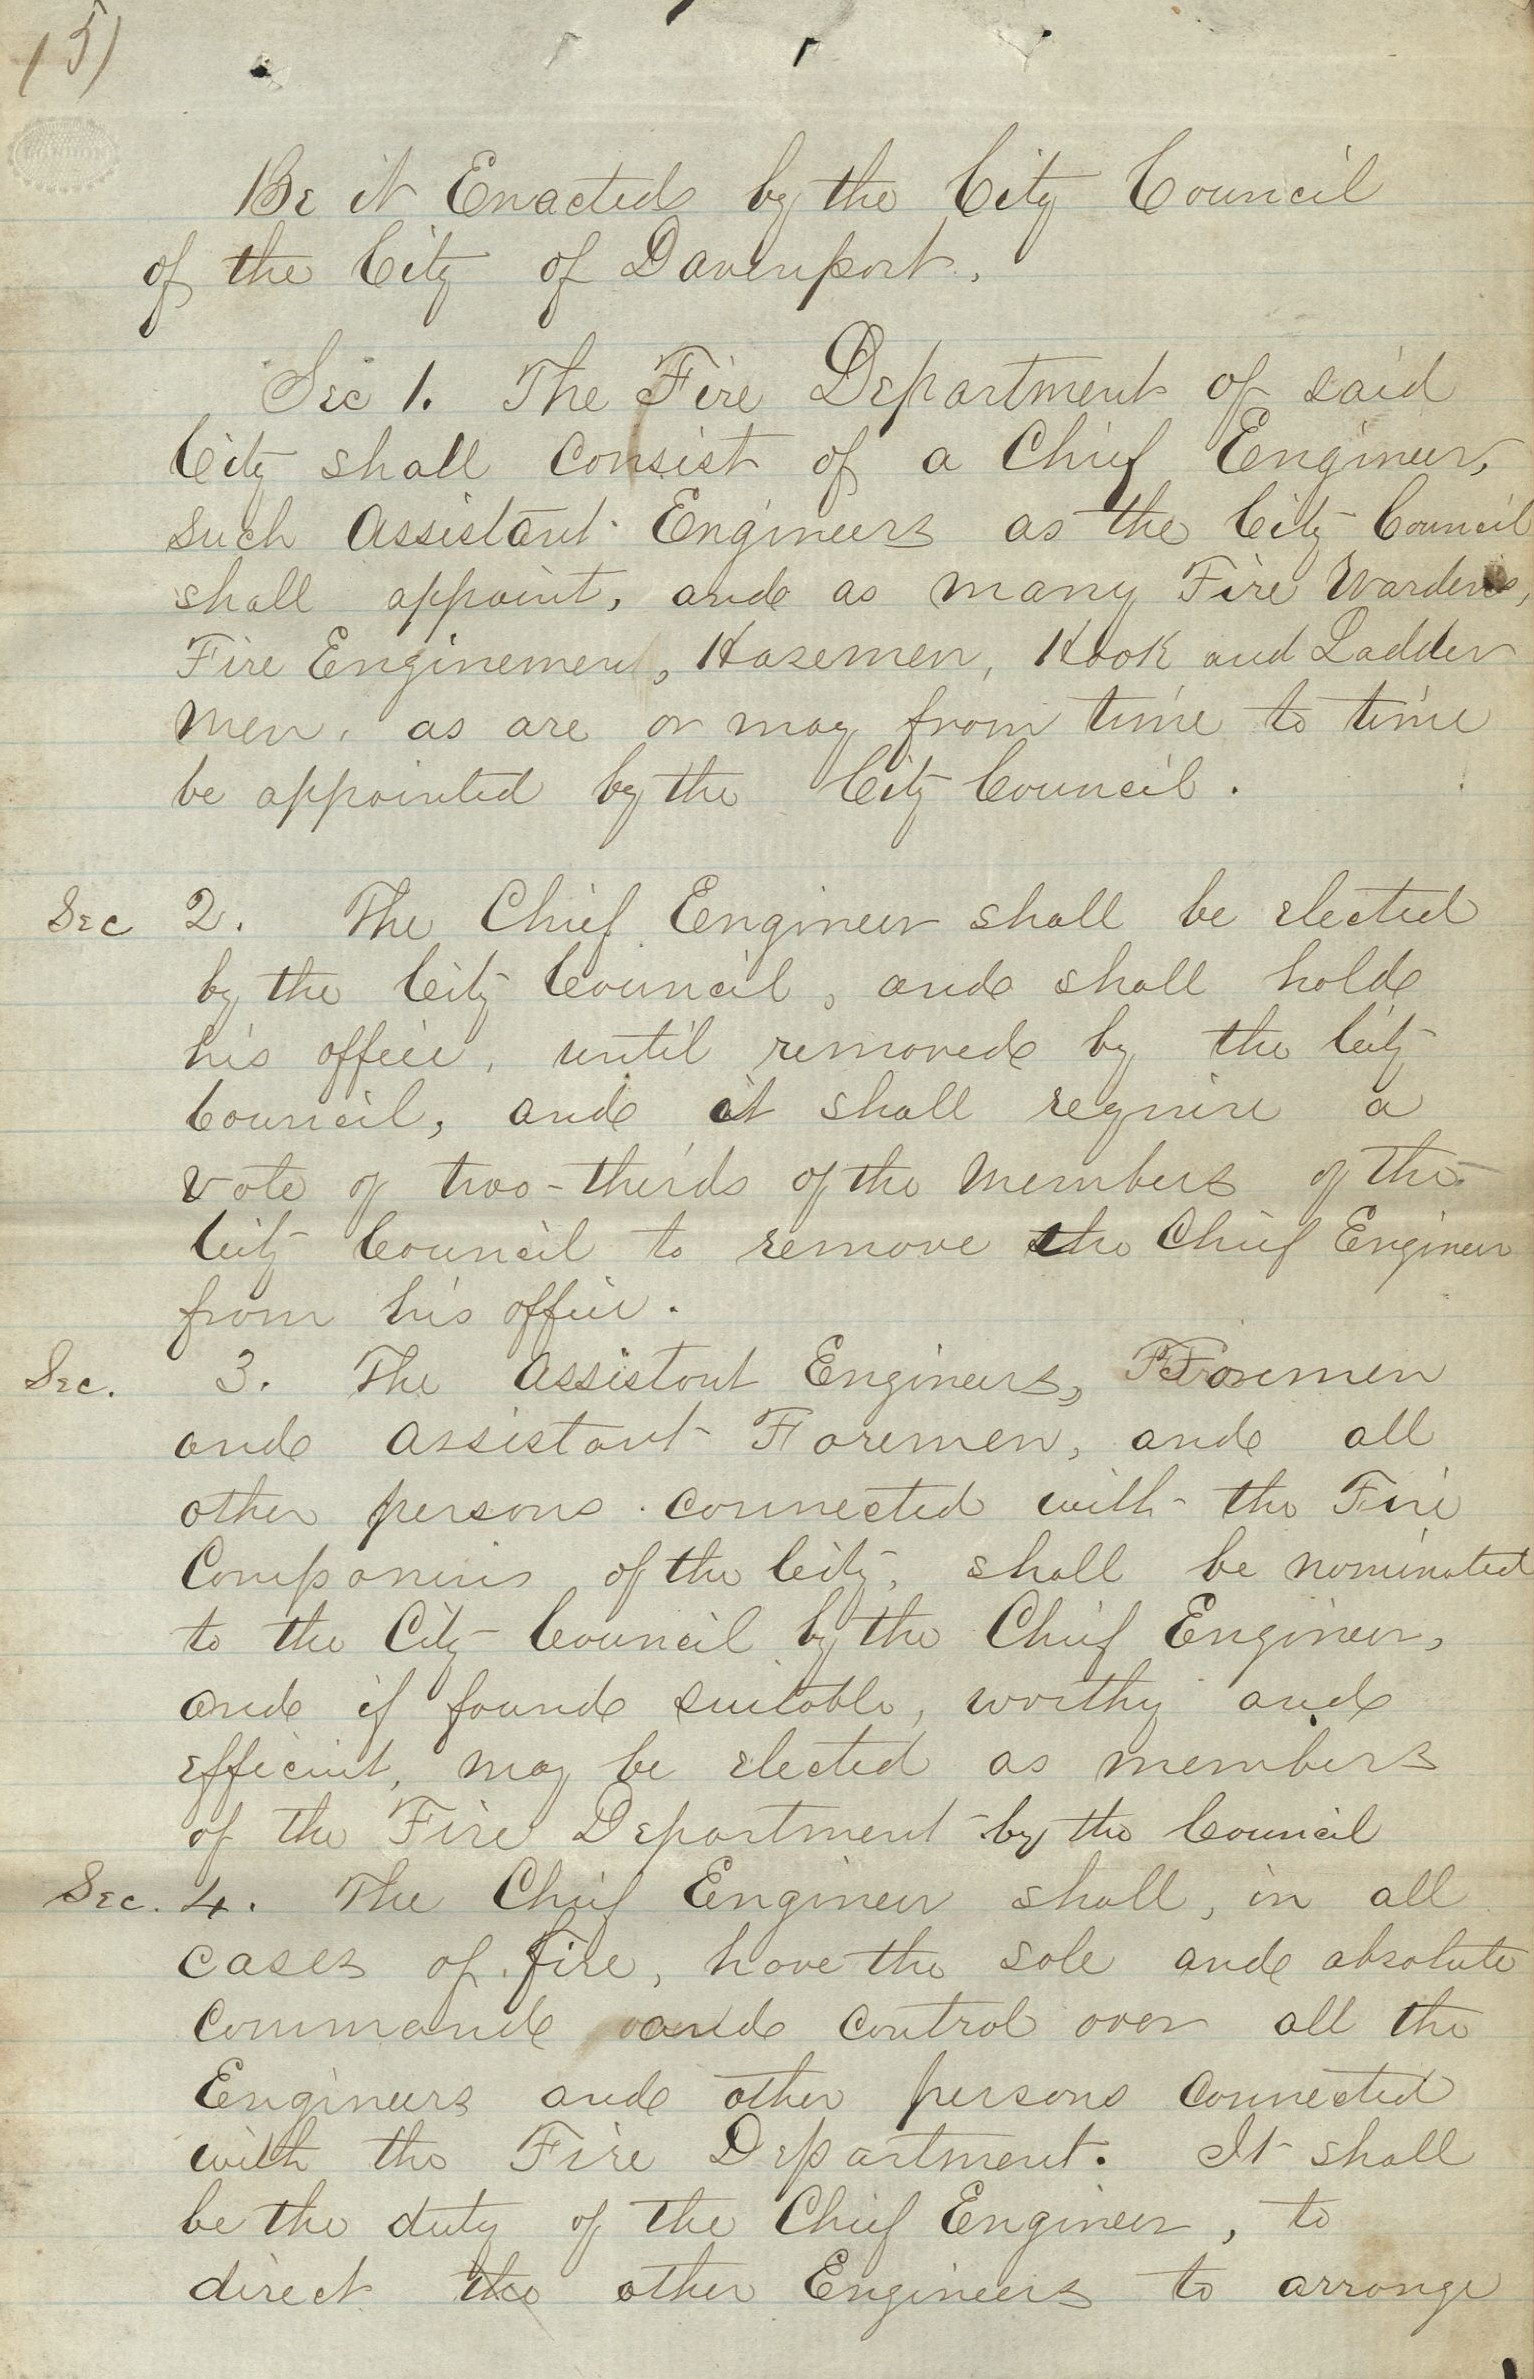 (5)
Be it Enacted by the City Council
of the City of Davenport.
Sec 1. The Fire Department of said
City shall consist of a Chief Engineer,
such Assistant Engineers as the City Council
shall appoint, and as many Fire Wardens,
Fire Enginement, Hosemen, Hook and Ladder
men, as are or may from time to time
be appointed by the City Council.
Sec 2. The Chief Engineer shall be elected
by the City Council, and shall hold
his office, until removed by the City
Council, and it shall require a
vote of two-thirds of the members of the
City Council to remove the Chief Engineer
from his office.
Sec. 3. The Assistant Engineers, Foremen
and Assistant Foremen, and all
other persons connected with the Fire
Companies of the City, shall be nominated
to the City Council by the Chief Engineer,
and if found suitable, worthy and
efficient, may be elected as members
of the Fire Department by the Council
Sec. 4. The Chief Engineer shall, in all
cases of fire, have the sole and absolute
command and control over all the
Engineers and other persons connected
with the Fire Department. It shall
be the duty of the Chief Engineer, to
direct the other Engineers to arrange